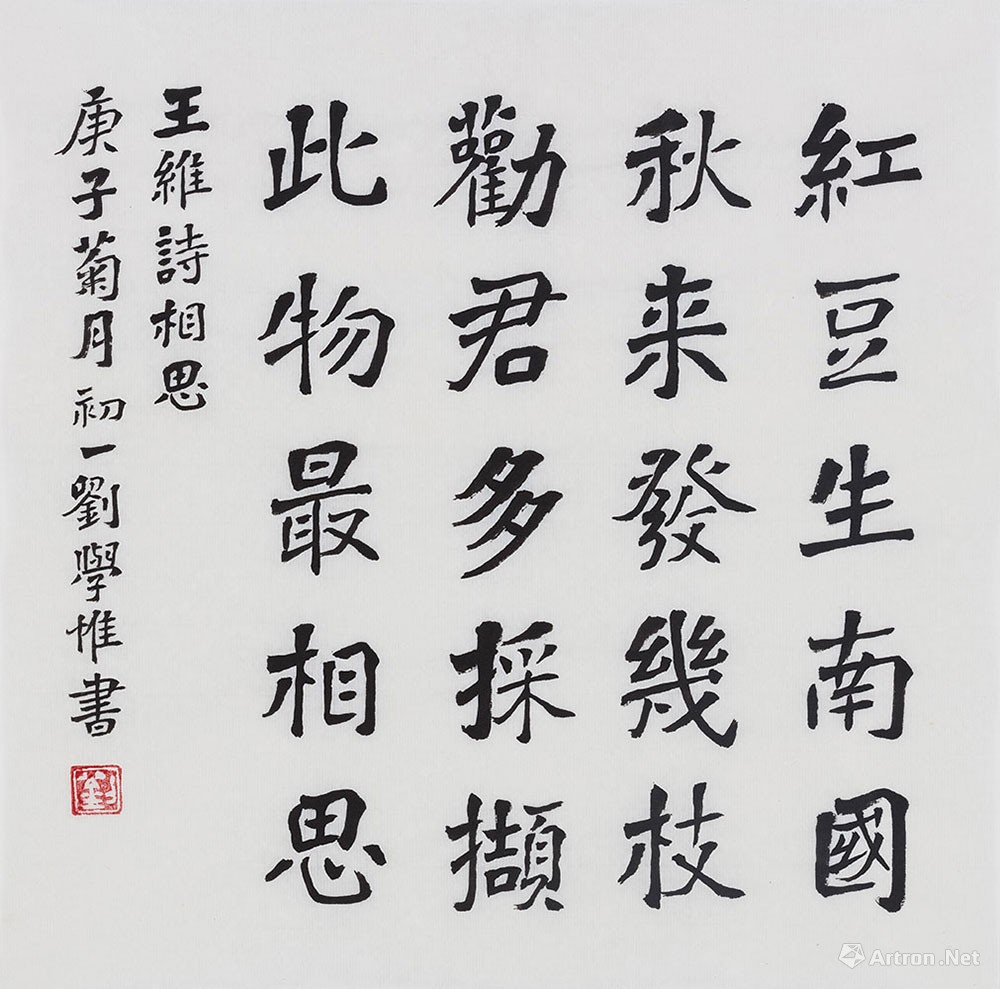 紅豆生南國
秋来發幾枝
勸君多採擷
此物最相思
王維詩相思
庚子菊月初一劉學惟書
劉
Artron.Net